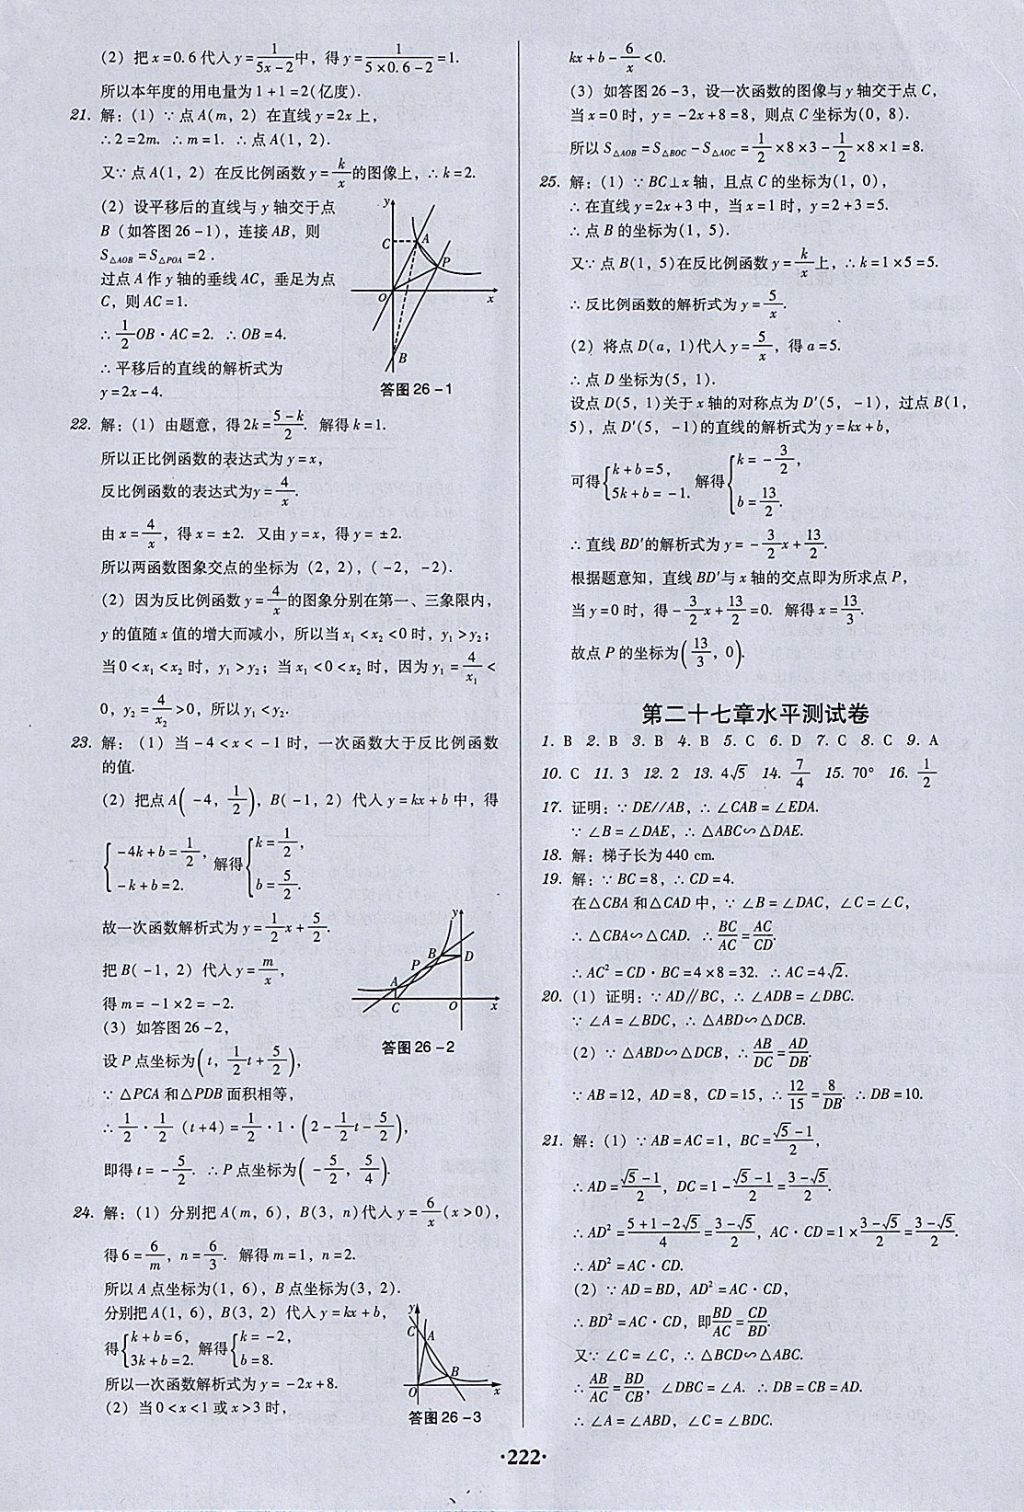 (2) 把 x=0.6 代入 y=1/(5x-2)中，得 y=1/(5×0.6-2)=1.
所以本年度的用电量为 1+1=2(亿度).
21. 解：(1) ∵ 点 A(m，2) 在直线 y=2x 上，
∴ 2=2m. ∴ m=1. ∴ 点 A(1，2).
又∵ 点 A(1，2) 在反比例函数 y=k/x的图像上，∴ k=2.
(2) 设平移后的直线与 y 轴交于点
B (如答图 26-1)，连接 AB，则
S△AOB=S△POA=2.
过点 A 作 y 轴的垂线 AC，垂足为点
C，则 AC=1.
∴ 1/2 OB·AC=2. ∴ OB=4.
∴ 平移后的直线的解析式为
y=2x-4.
y
C
A
P
O
x
B
答图 26-1
22. 解：(1) 由题意，得 2k=(5-k)/2. 解得 k=1.
所以正比例函数的表达式为 y=x，
反比例函数的表达式为y=4/x.
由 x=4/x，得 x=±2. 又由 y=x，得 y=±2.
所以两函数图象交点的坐标为 (2，2)，(-2，-2).
(2) 因为反比例函数 y=4/x的图象分别在第一、三象限内，
y 的值随 x 值的增大而减小，所以当 x₁<x₂<0 时，y₁>y₂；
当 0<x₁<x₂ 时，y₁>y₂；当 x₁<0<x₂ 时，因为 y₁=4/x₁<
0，y₂=4/x₂>0，所以 y₁<y₂.
23. 解：(1) 当 -4<x<-1 时，一次函数大于反比例函数
的值.
(2) 把点 A(-4，1/2)，B(-1，2) 代入 y=kx+b 中，得
{-4k+b=1/2，-k+b=2. 解得{k=1/2，b=5/2.
故一次函数解析式为 y=1/2 x+5/2.
把 B(-1，2) 代入 y=m/x，
得 m=-1×2=-2.
(3) 如答图 26-2，
设 P 点坐标为(t，1/2 t+5/2)，
∵ △PCA 和△PDB 面积相等，
∴ 1/2·1/2 (t+4)=1/2·1·(2-1/2 t-5/2)，
即得 t=-5/2. ∴ P 点坐标为(-5/2，5/4).
y
B
D
P
A
C
O
x
答图 26-2
24. 解：(1) 分别把 A(m，6)，B(3，n)代入 y=6/x(x>0)，
得 6=6/m，n=6/3. 解得 m=1，n=2.
所以 A 点坐标为(1，6)，B 点坐标为(3，2).
分别把 A(1，6)，B(3，2) 代入 y=kx+b，
得{k+b=6，3k+b=2. 解得{k=-2，b=8.
所以一次函数解析式为 y=-2x+8.
(2) 当 0<x<1 或 x>3 时，
y
C
A
B
O
x
答图 26-3
kx+b-6/x<0.
(3) 如答图 26-3，设一次函数的图像与 y 轴交于点 C，
当 x=0 时，y=-2x+8=8，则点 C 坐标为(0，8).
所以 S△AOB=S△BOC-S△AOC=1/2×8×3-1/2×8×1=8.
25. 解：(1) ∵ BC⊥x 轴，且点 C 的坐标为(1，0)，
∴ 在直线 y=2x+3 中，当 x=1 时，y=2+3=5.
∴ 点 B 的坐标为(1，5).
又∵ 点 B(1，5)在反比例函数 y=k/x上，∴ k=1×5=5.
∴ 反比例函数的解析式为 y=5/x.
(2) 将点 D(a，1)代入 y=5/x，得 a=5.
∴ 点 D 坐标为(5，1).
设点 D(5，1)关于 x 轴的对称点为 D′(5，-1)，过点 B(1，
5)，点 D′(5，-1)的直线的解析式为 y=kx+b，
可得{k+b=5，5k+b=-1. 解得{k=-3/2，b=13/2.
∴ 直线 BD′的解析式为 y=-3/2 x+13/2.
根据题意知，直线 BD′与 x 轴的交点即为所求点 P，
当 y=0 时，得 -3/2 x+13/2=0. 解得 x=13/3.
故点 P 的坐标为(13/3，0).
第二十七章水平测试卷
1. B 2. B 3. B 4. B 5. C 6. D 7. C 8. C 9. A
10. C 11. 3 12. 2 13. 4√5 14. 7/4 15. 70° 16. 1/2
17. 证明：∵ DE//AB，∴ ∠CAB=∠EDA.
∵ ∠B=∠DAE，∴ △ABC∽△DAE.
18. 解：梯子长为 440 cm.
19. 解：∵ BC=8，∴ CD=4.
在△CBA 和△CAD 中，∵ ∠B=∠DAC，∠C=∠C，
∴ △CBA∽△CAD. ∴ BC/AC=AC/CD.
∴ AC²=CD·BC=4×8=32. ∴ AC=4√2.
20. (1) 证明：∵ AD∥BC，∴ ∠ADB=∠DBC.
∵ ∠A=∠BDC，∴ △ABD∽△DCB.
(2) ∵ △ABD∽△DCB，∴ AB/DC=AD/DB.
∵ AB=12，AD=8，CD=15，∴ 12/15=8/DB. ∴ DB=10.
21. 解：(1) ∵ AB=AC=1，BC=(√5-1)/2，
∴ AD=(√5-1)/2，DC=1-(√5-1)/2=(3-√5)/2.
∴ AD²=(5+1-2√5)/4=(3-√5)/2，AC·CD=1×(3-√5)/2=(3-√5)/2.
∴ AD²=AC·CD.
(2) ∵ AD=BD，AD²=AC·CD，
∴ BD²=AC·CD，即BD/AC=CD/BD.
又∵ ∠C=∠C，∴ △BCD∽△ABC.
∴ AB/AC=BD/CB，∠DBC=∠A. ∴ DB=CB=AD.
∴ ∠A=∠ABD，∠C=∠BDC.
·222·